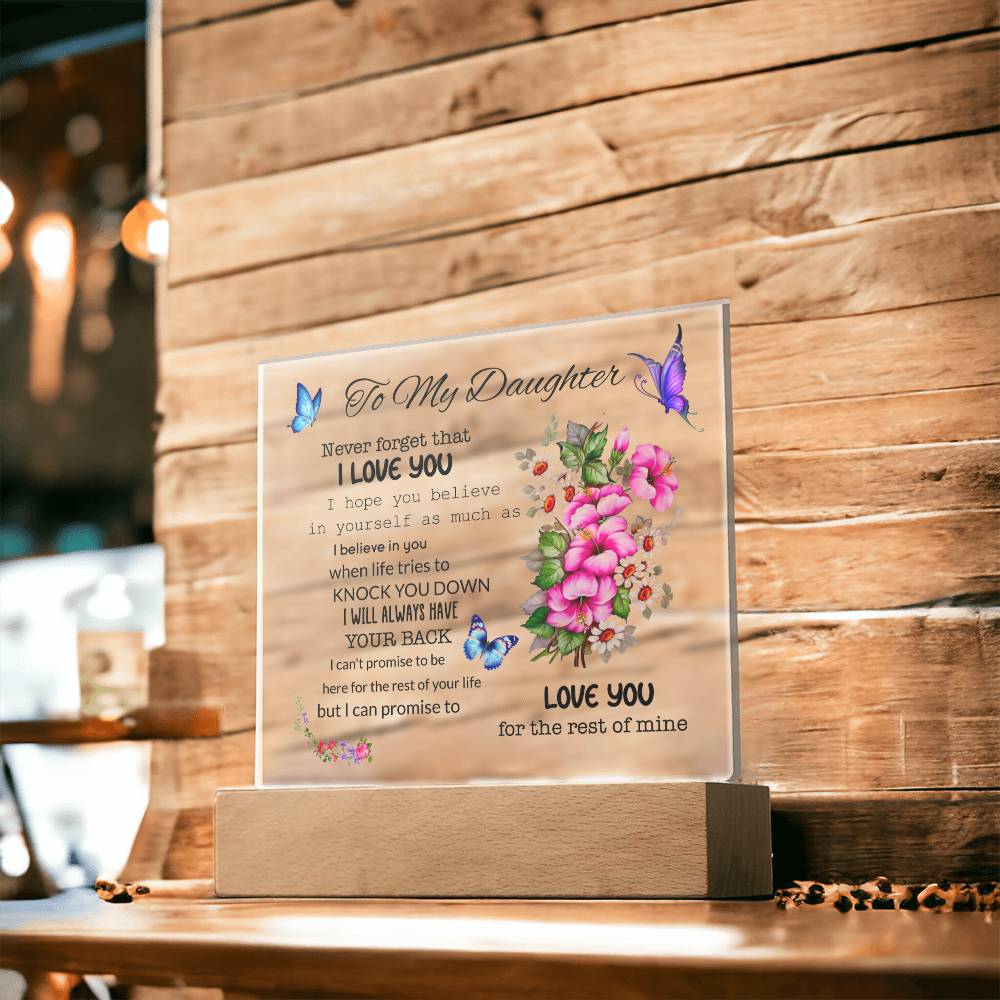 To My Daughter
Never forget that
I LOVE YOU
I hope you believe
in yourself as much as
I believe in you
when life tries to
KNOCK YOU DOWN
I WILL ALWAYS HAVE
YOUR BACK
I can't promise to be
here for the rest of your life
but I can promise to
LOVE YOU
for the rest of mine